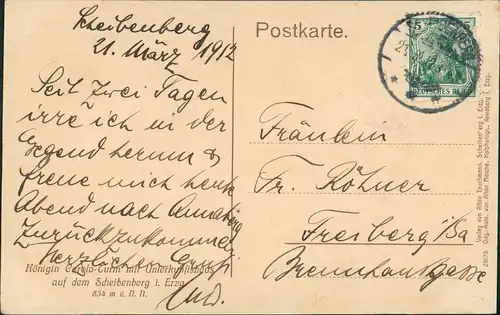 Scheibenberg
21. März 1912
Seit zwei Tagen
irre ich in der
Gegend herum &
freue mich heute
Abend nach Annaberg
zurückzukommen
Herzlichen Gruß
Königin Carola-Turm mit Unterkunftshaus
auf dem Scheibenberg i. Erzg.
834 m ü. N. N.
Postkarte.
DEUTSCHES REICH
Fräulein
Fr. Röhner
Freiberg i/Sa
Verlag von Albin Teuchmann, Scheibenberg i. Erzg.
28178